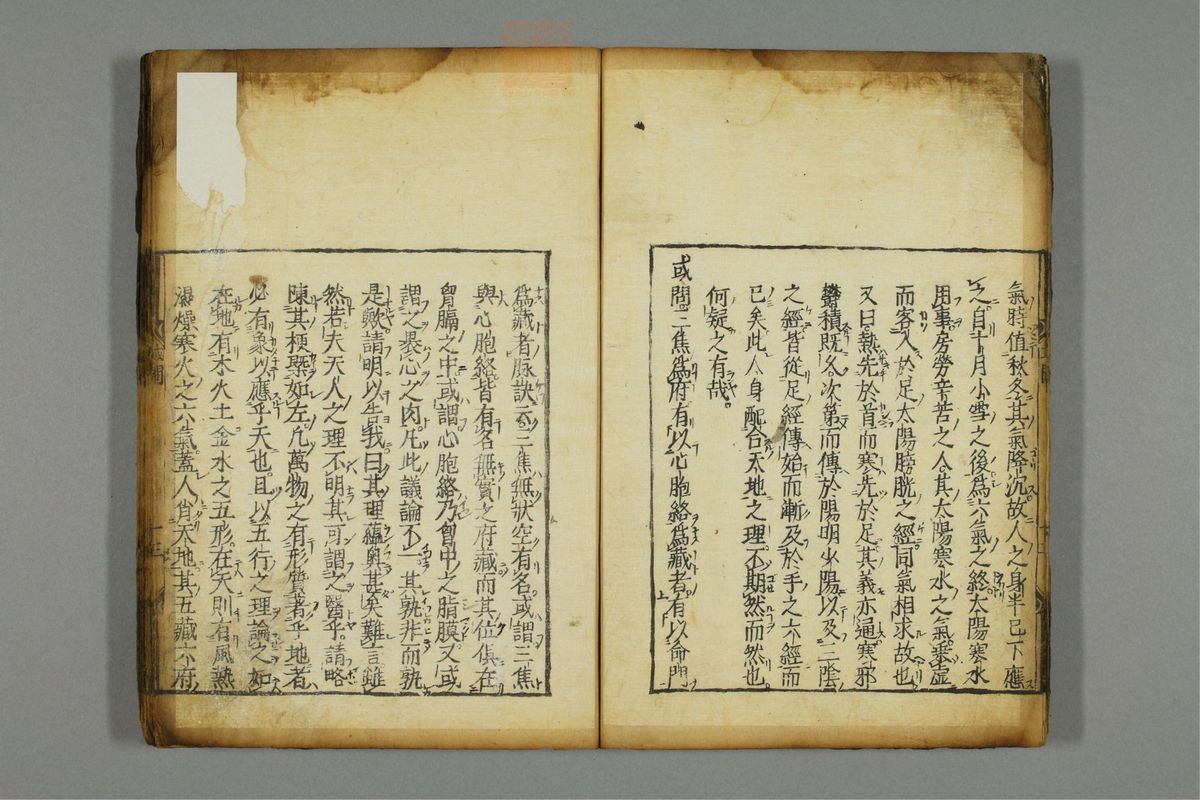 氣時值秋冬其氣降沉故人之身半已下應
之自十月小雪之後爲六氣之終太陽寒水
用事房勞辛苦之人其太陽寒水之氣乗虚
而客入於足太陽膀胱之經同氣相求故也
又曰熱先於首而寒先於足其義亦通寒邪
鬱積既久次第而傳於陽明少陽以及三陰
之經皆從足經傳始而漸及於手之六經而
已矣此人身配合天地之理不期然而然也
何疑之有哉
或問三焦爲府有以心胞絡爲藏者有以命門
爲藏者脉訣云三焦無狀空有名或謂三焦
與心胞絡皆有名無實之府藏而其位俱在
胷膈之中或謂心胞絡乃胷中之脂膜又或
謂之裹心之肉凡此議論不一其孰非而孰
是歟請明以告我曰其理蘊奧甚矣難言雖
然若夫天人之理不明其可謂之醫乎請略
陳其梗槩如左凡萬物之有形質著乎地者
必有象以應乎天也且以五行之理論之如
在地有木火土金水之五形在天則有風熱
濕燥寒火之六氣蓋人肖天地其五藏六府